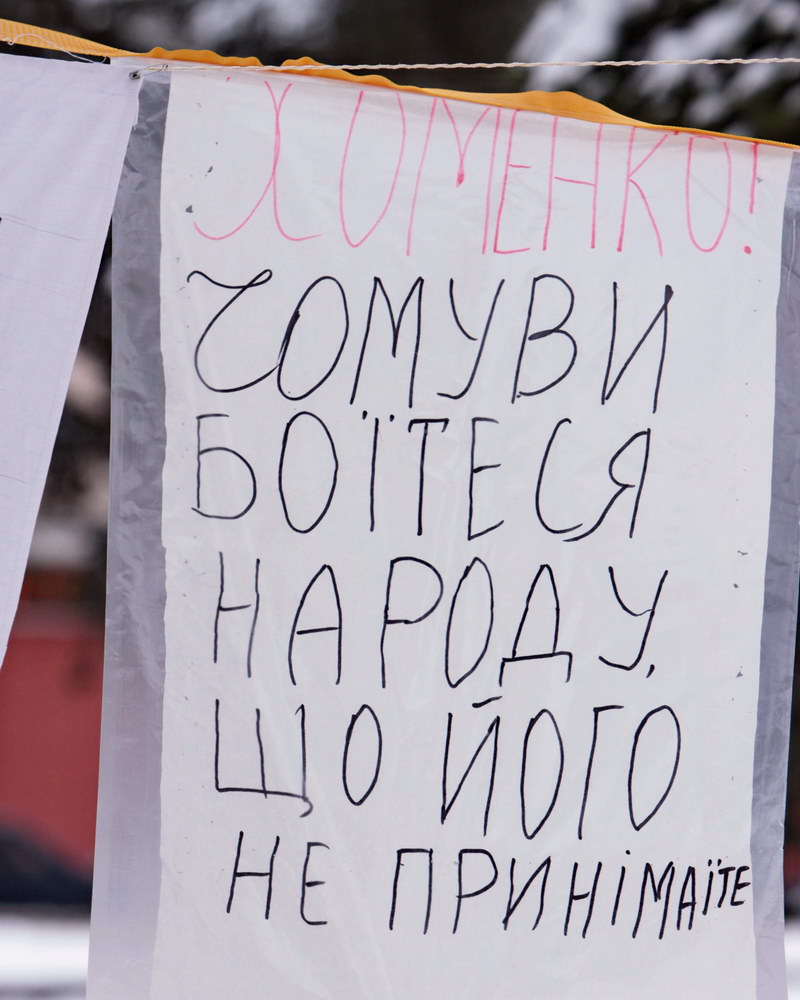 ХОМЕНКО!
ЧОМУ ВИ
БОЇТЕСЯ
НАРОДУ,
ЩО ЙОГО
НЕ ПРИНІМАЇТЕ